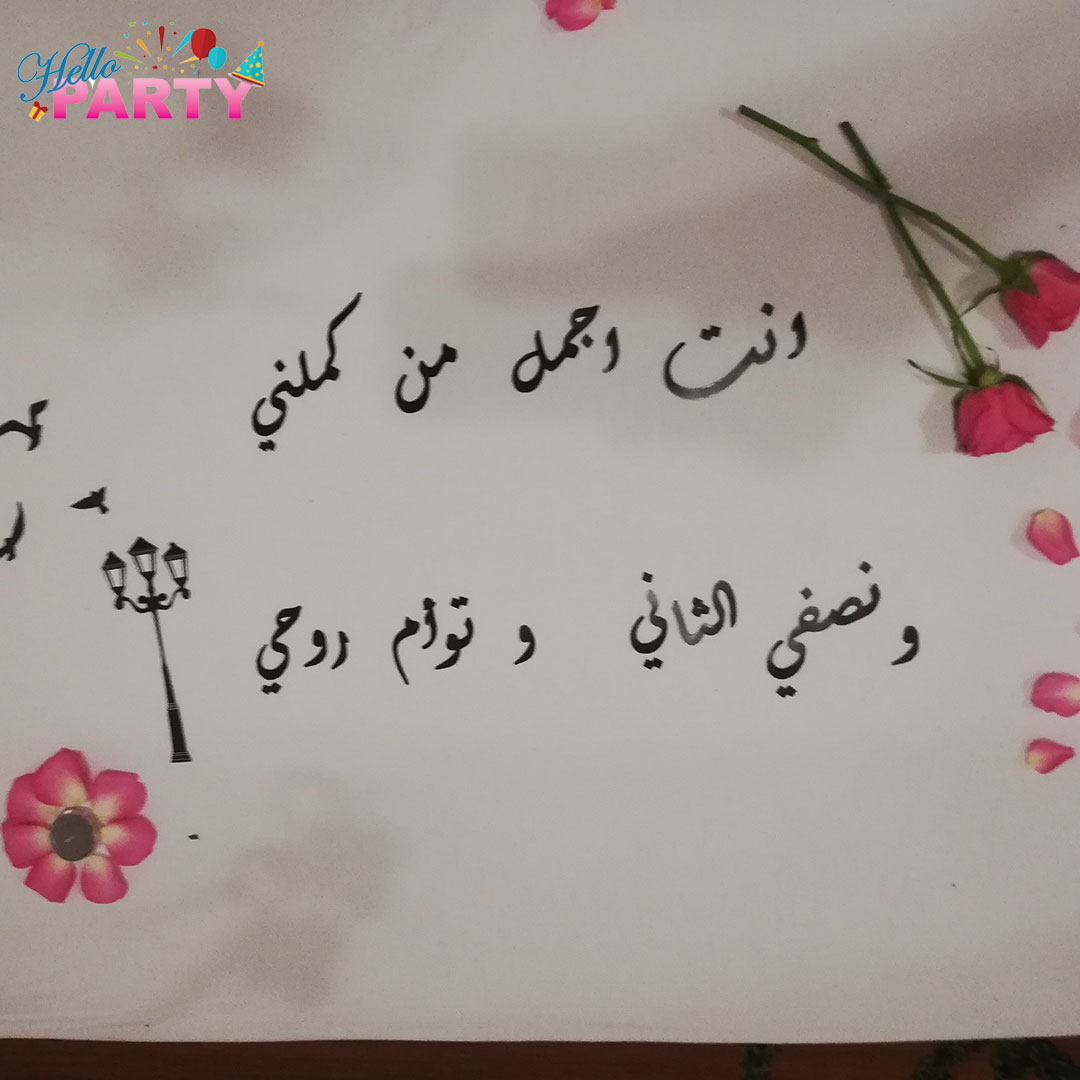 Hello
PARTY
انت اجمل من كملني
و نصفي الثاني و توأم روحي